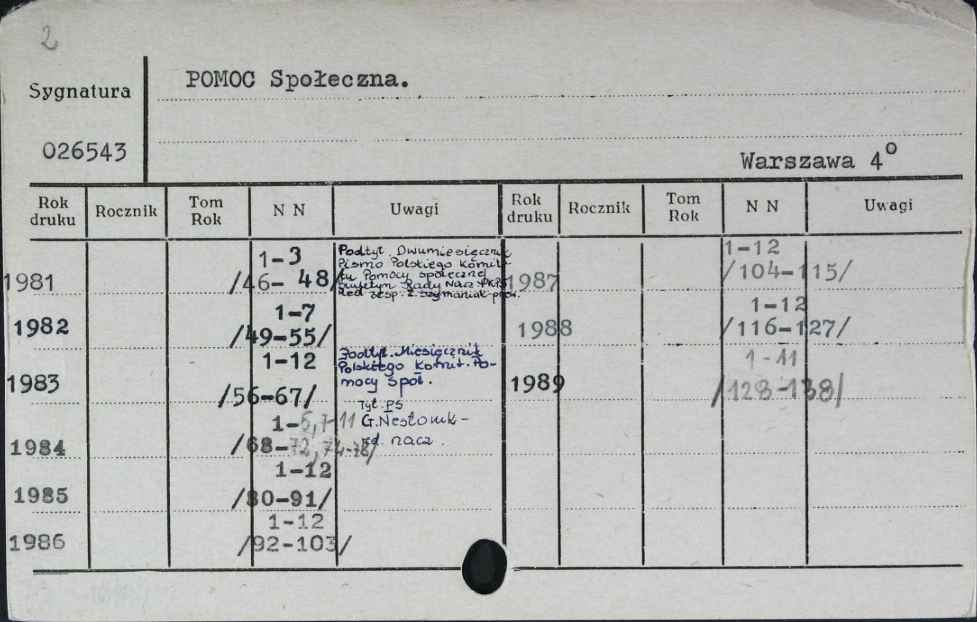 2
POMOC Społeczna.
Sygnatura
026543
Warszawa 4°
Rok druku Rocznik Tom Rok N N Uwagi Rok druku Rocznik Tom Rok N N Uwagi
1981 1-3 /46-48/
Podtyt. Dwumiesięcznik
Pismo Polskiego Komite-
tu Pomocy Społecznej
Biuletyn Rady Nacz. PKPS
Red. zesp. Z. Szymaniak-prow.
1982 1-7 /49-55/
1983 1-12 /56-67/
Podtyt. Miesięcznik
Polskiego Komit. Po-
mocy Społ.
1984 1-5,7-11 /68-72,74-78/
Tyt PS
G. Nestonik-
red. nacz.
1985 1-12 /80-91/
1986 1-12 /92-103/
1987 1-12 /104-115/
1988 1-12 /116-127/
1989 1-11 /128-138/